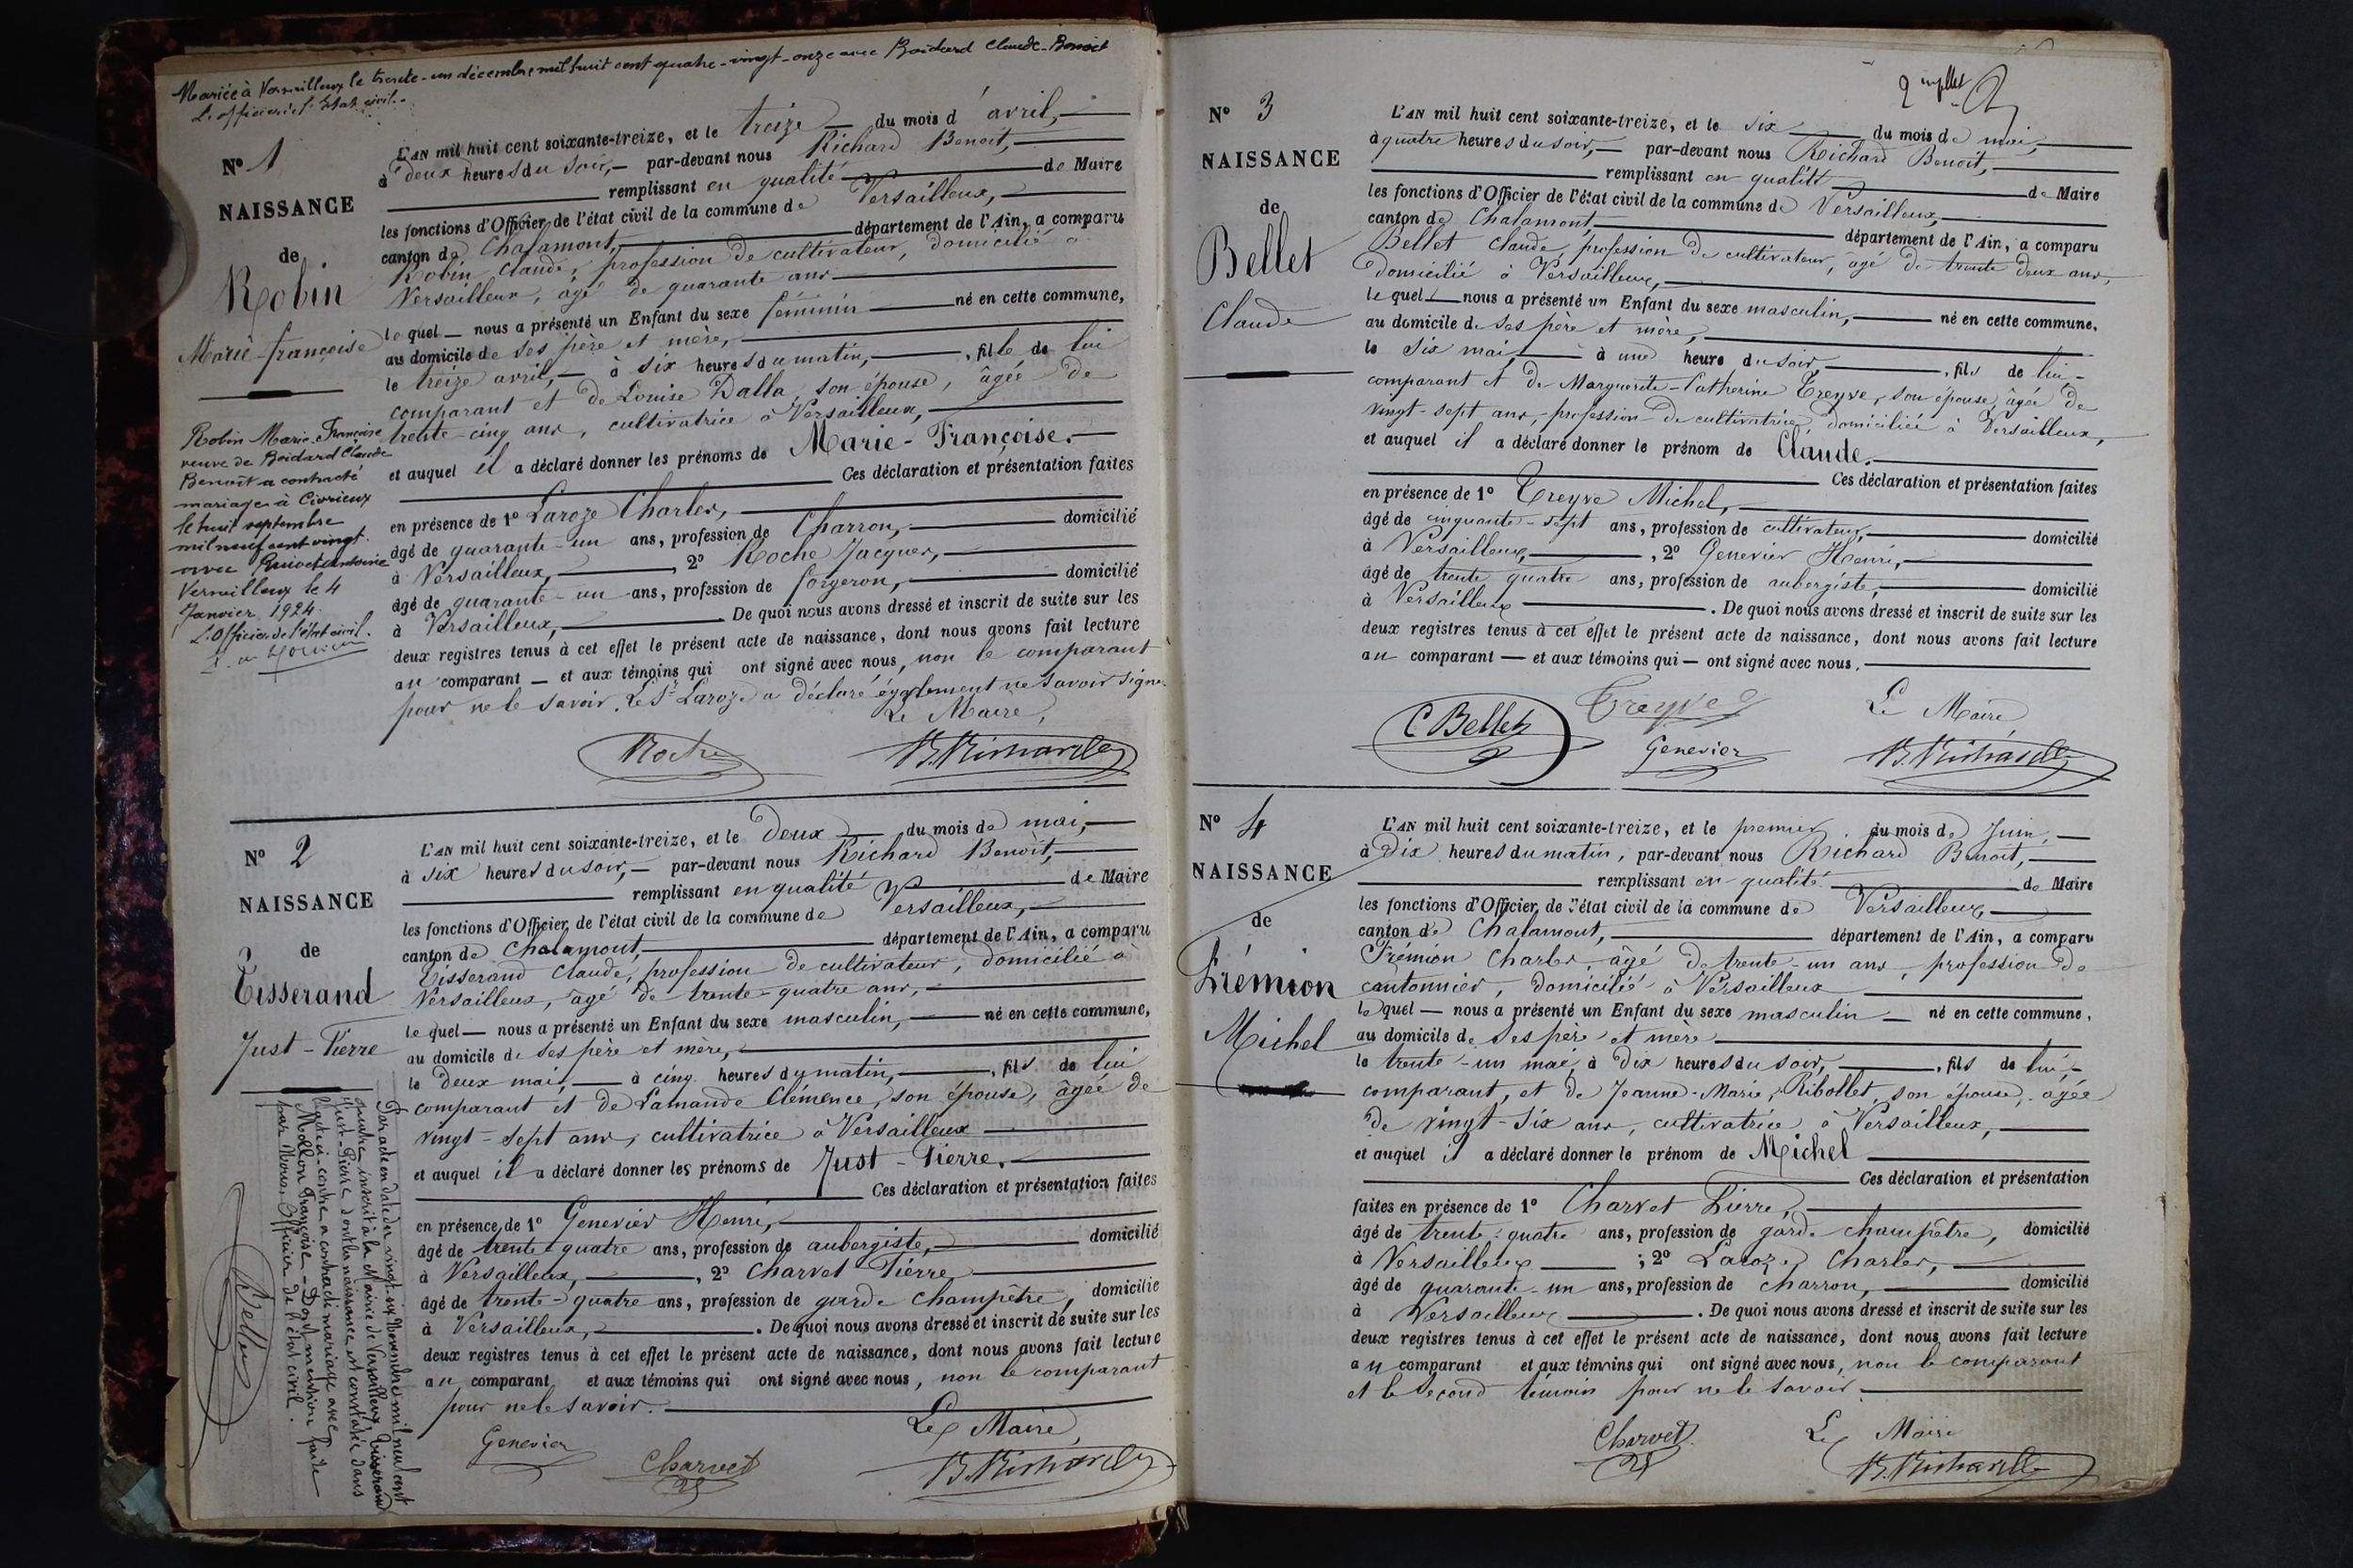 Mariée à Versailleux le trente-un décembre mil huit cent quatre-vingt-onze avec Boidard Claude-Benoit
L'officier de l'état civil.
N° 1
NAISSANCE
de
Robin
Marie-françoise
Robin Marie-Françoise
veuve de Boidard Claude
Benoit a contracté
mariage à Civrieux
le huit septembre
mil neuf cent vingt.
avec Antoine
Versailleux le 4
Janvier 1924.
L'Officier de l'état civil.
L'AN mil huit cent soixante-treize, et le treize du mois d'avril,
à deux heures du soir, par-devant nous Richard Benoit,
remplissant en qualité de Maire
les fonctions d'Officier de l'état civil de la commune de Versailleux,
canton de Chalamont, département de l'Ain, a comparu
Robin Claude, profession de cultivateur, domicilié à
Versailleux, âgé de quarante ans
lequel nous a présenté un Enfant du sexe féminin né en cette commune,
au domicile de ses père et mère,
le treize avril, à six heures du matin, , fille de lui
comparant et de Louise Dalla, son épouse, âgée de
trente-cinq ans, cultivatrice à Versailleux,
et auquel il a déclaré donner les prénoms de Marie-Françoise.
Ces déclaration et présentation faites
en présence de 1° Laroze Charles,
âgé de quarante-un ans, profession de Charron, domicilié
à Versailleux, , 2° Roche Jacques,
âgé de quarante-un ans, profession de forgeron, domicilié
à Versailleux, De quoi nous avons dressé et inscrit de suite sur les
deux registres tenus à cet effet le présent acte de naissance, dont nous avons fait lecture
au comparant et aux témoins qui ont signé avec nous, non le comparant
pour ne le savoir. Le Sr Laroze a déclaré également ne savoir signer
Le Maire,
Roche B. Richard
N° 2
NAISSANCE
de
Tisserand
Just-Pierre
Par acte en date du vingt-six Novembre mil neuf cent
quatre inscrit à la Mairie de Versailleux, Tisserand
Just-Pierre dont la naissance est constatée dans
l'acte ci-contre a contracté mariage avec
Mollon Françoise - Dont mention faite
par Nous, Officier de l'état civil.
L'AN mil huit cent soixante-treize, et le deux du mois de mai,
à six heures du soir, par-devant nous Richard Benoit,
remplissant en qualité de Maire
les fonctions d'Officier de l'état civil de la commune de Versailleux,
canton de Chalamont, département de l'Ain, a comparu
Tisserand Claude, profession de cultivateur, domicilié à
Versailleux, âgé de trente-quatre ans,
lequel nous a présenté un Enfant du sexe masculin, né en cette commune,
au domicile de ses père et mère,
le deux mai, à cinq heures du matin, , fils de lui
comparant et de Lamande Clémence, son épouse, âgée de
vingt-sept ans, cultivatrice à Versailleux
et auquel il a déclaré donner les prénoms de Just-Pierre.
Ces déclaration et présentation faites
en présence de 1° Genevier Henri,
âgé de trente-quatre ans, profession de aubergiste, domicilié
à Versailleux, , 2° Charvet Pierre
âgé de trente-quatre ans, profession de garde champêtre, domicilié
à Versailleux, . De quoi nous avons dressé et inscrit de suite sur les
deux registres tenus à cet effet le présent acte de naissance, dont nous avons fait lecture
au comparant et aux témoins qui ont signé avec nous, non le comparant
pour ne le savoir.
Le Maire,
Genevier Charvet B. Richard
N° 3
NAISSANCE
de
Bellet
Claude
L'AN mil huit cent soixante-treize, et le six du mois de mai,
à quatre heures du soir, par-devant nous Richard Benoit,
remplissant en qualité de Maire
les fonctions d'Officier de l'état civil de la commune de Versailleux,
canton de Chalamont, département de l'Ain, a comparu
Bellet Claude, profession de cultivateur, âgé de trente deux ans,
domicilié à Versailleux,
lequel nous a présenté un Enfant du sexe masculin, né en cette commune,
au domicile de ses père et mère,
le six mai, à une heure du soir, , fils de lui
comparant et de Marguerite-Catherine Treyve, son épouse, âgée de
vingt-sept ans, profession de cultivatrice, domiciliée à Versailleux,
et auquel il a déclaré donner le prénom de Claude.
Ces déclaration et présentation faites
en présence de 1° Treyve Michel,
âgé de cinquante-sept ans, profession de cultivateur, domicilié
à Versailleux, , 2° Genevier Henri,
âgé de trente quatre ans, profession de aubergiste, domicilié
à Versailleux . De quoi nous avons dressé et inscrit de suite sur les
deux registres tenus à cet effet le présent acte de naissance, dont nous avons fait lecture
au comparant et aux témoins qui ont signé avec nous,
C Bellet Treyve Le Maire
Genevier B. Richard
N° 4
NAISSANCE
de
Frémion
Michel
L'AN mil huit cent soixante-treize, et le premier du mois de Juin,
à dix heures du matin, par-devant nous Richard Benoit,
remplissant en qualité de Maire
les fonctions d'Officier de l'état civil de la commune de Versailleux,
canton de Chalamont, département de l'Ain, a comparu
Frémion Charles, âgé de trente-un ans, profession de
cantonnier, domicilié à Versailleux
lequel nous a présenté un Enfant du sexe masculin né en cette commune,
au domicile de ses père et mère
le trente-un mai, à dix heures du soir, , fils de lui
comparant, et de Jeanne-Marie Ribollet, son épouse, âgée
de vingt-six ans, cultivatrice à Versailleux,
et auquel il a déclaré donner le prénom de Michel
Ces déclaration et présentation
faites en présence de 1° Charvet Pierre,
âgé de trente-quatre ans, profession de garde champêtre, domicilié
à Versailleux ; 2° Laroze Charles,
âgé de quarante-un ans, profession de charron, domicilié
à Versailleux . De quoi nous avons dressé et inscrit de suite sur les
deux registres tenus à cet effet le présent acte de naissance, dont nous avons fait lecture
au comparant et aux témoins qui ont signé avec nous, non le comparant
et le second témoin pour ne le savoir
Charvet Le Maire
B. Richard